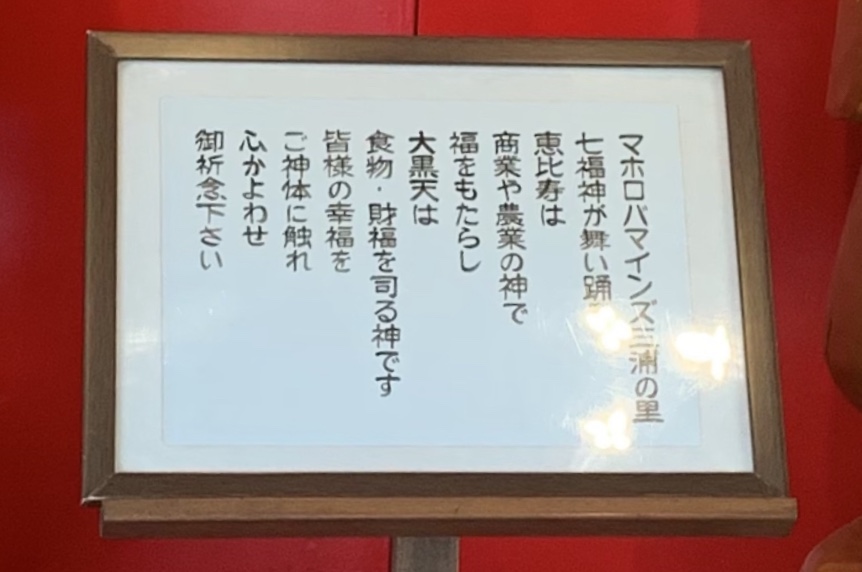 マホロバマインズ三浦の里
七福神が舞い踊
恵比寿は
商業や農業の神で
福をもたらし
大黒天は
食物・財福を司る神です
皆様の幸福を
ご神体に触れ
心かよわせ
御祈念下さい